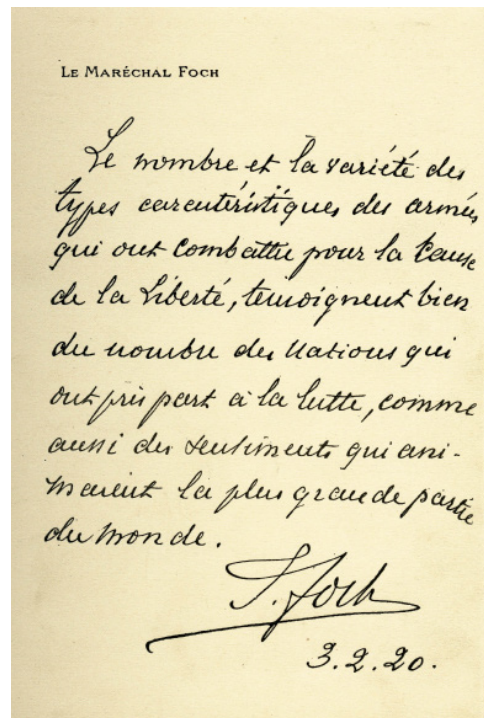 LE MARÉCHAL FOCH
Le nombre et la variété des
types caractéristiques des armées
qui ont combattu pour la Cause
de la Liberté, témoignent bien
du nombre des Nations qui
ont pris part à la lutte, comme
aussi des sentiments qui ani-
maient la plus grande partie
du monde.
F. Foch
3.2.20.